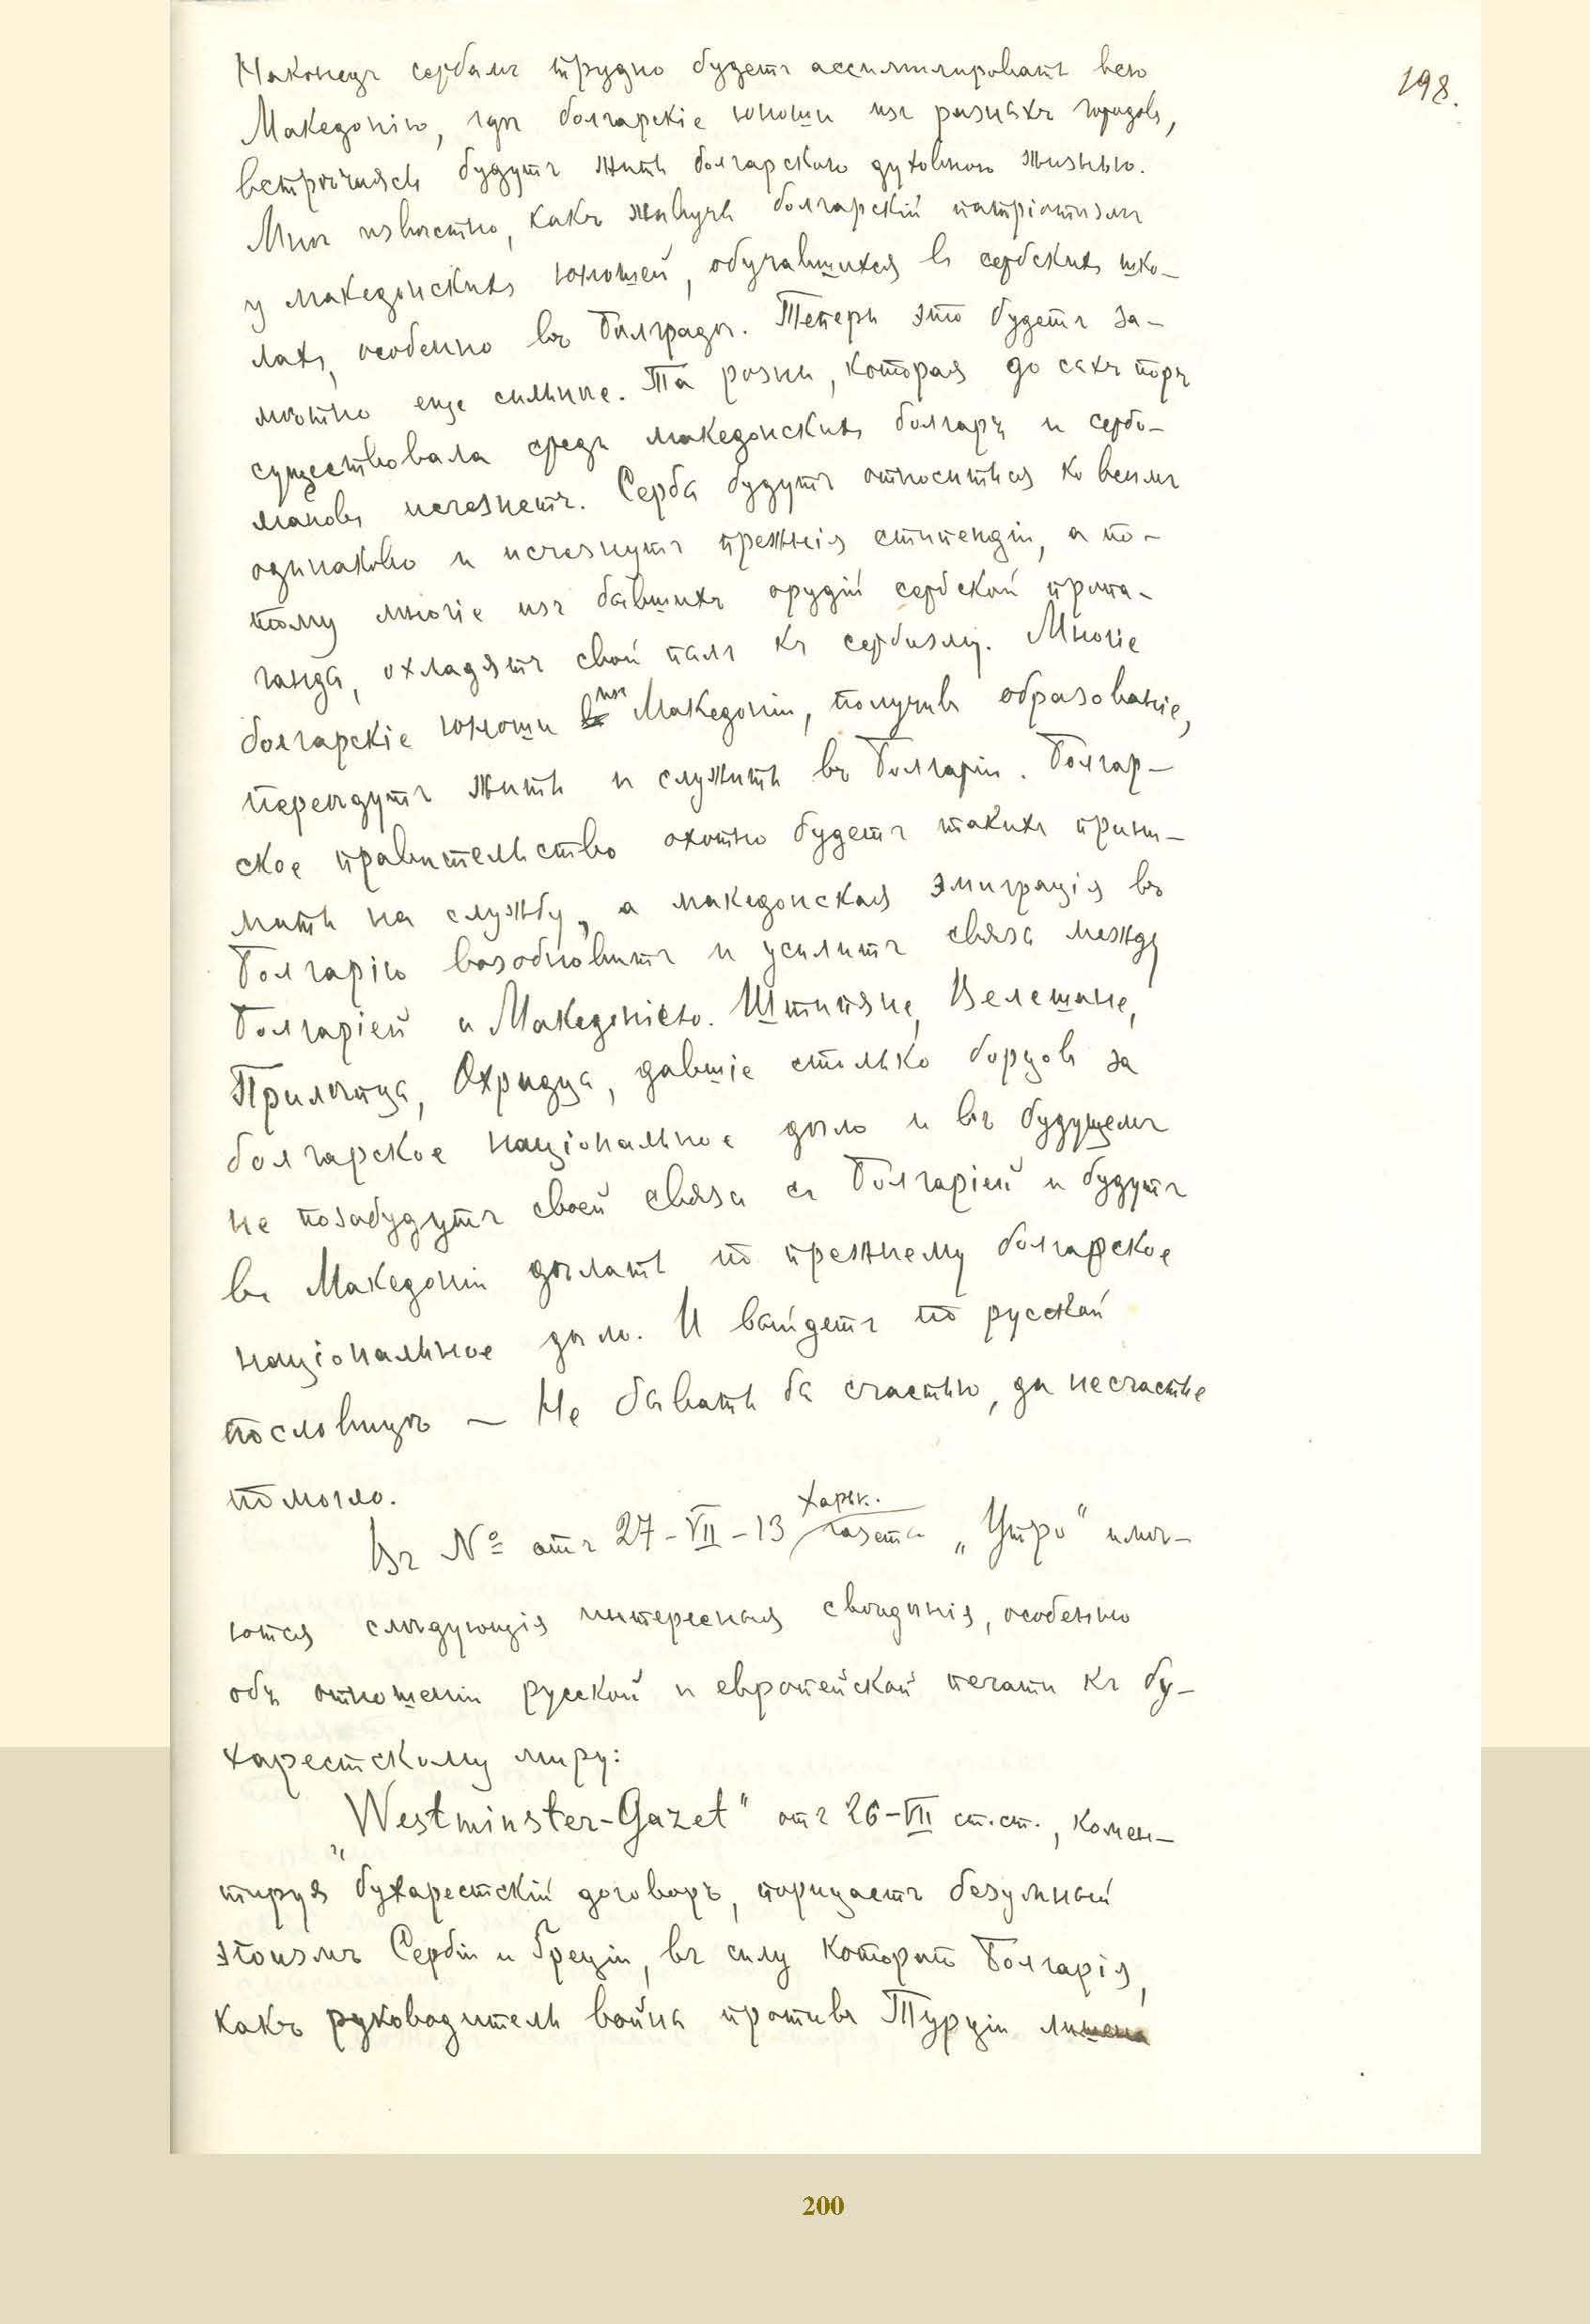 198.
Наконецъ сербамъ трудно будетъ ассимилировать всю
Македонію, гдѣ болгарскіе юноши изъ разныхъ городовъ,
встрѣчаясь будутъ жить болгарскою духовною жизнью.
Мнѣ извѣстно, какъ живучъ болгарскій патріотизмъ
у македонскихъ юношей, обучавшихся въ сербскихъ шко-
лахъ, особенно въ Бѣлградѣ. Теперь это будетъ за-
мѣтно еще сильнѣе. Та рознь, которая до сихъ поръ
существовала средь македонскихъ болгаръ и сербо-
мановъ исчезнетъ. Сербы будутъ относиться ко всѣмъ
одинаково и исчезнутъ прежнія стипендіи, а по-
тому многіе изъ бывшихъ орудій сербской пропа-
ганды, охладятъ свой пылъ къ сербизму. Многіе
болгарскіе юноши изъ Македоніи, получивъ образованіе,
переѣдутъ жить и служить въ Болгаріи. Болгар-
ское правительство охотно будетъ такихъ прини-
мать на службу, а македонская эмиграція въ
Болгарію возобновитъ и усилитъ связь между
Болгаріей и Македоніею. Штипяне, Велешане,
Прилѣпцы, Охридцы, давшіе столько борцовъ за
болгарское національное дѣло и въ будущемъ
не позабудутъ своей связи съ Болгаріей и будутъ
въ Македоніи дѣлать по прежнему болгарское
національное дѣло. И выйдетъ по русской
пословицѣ — Не бывать бы счастью, да несчастье
помогло.
Въ № отъ 27-VII-13 харьк. газета „Утро" имѣ-
ются слѣдующія интересныя свѣдѣнія, особенно
объ отношеніи русской и европейской печати къ бу-
харестскому миру:
„Westminster-Gazet" отъ 26-VII ст.ст., комен-
тируя бухарестскій договоръ, порицаетъ безумный
эгоизмъ Сербіи и Греціи, въ силу котораго Болгарія,
какъ руководитель войны противъ Турціи лишена
200